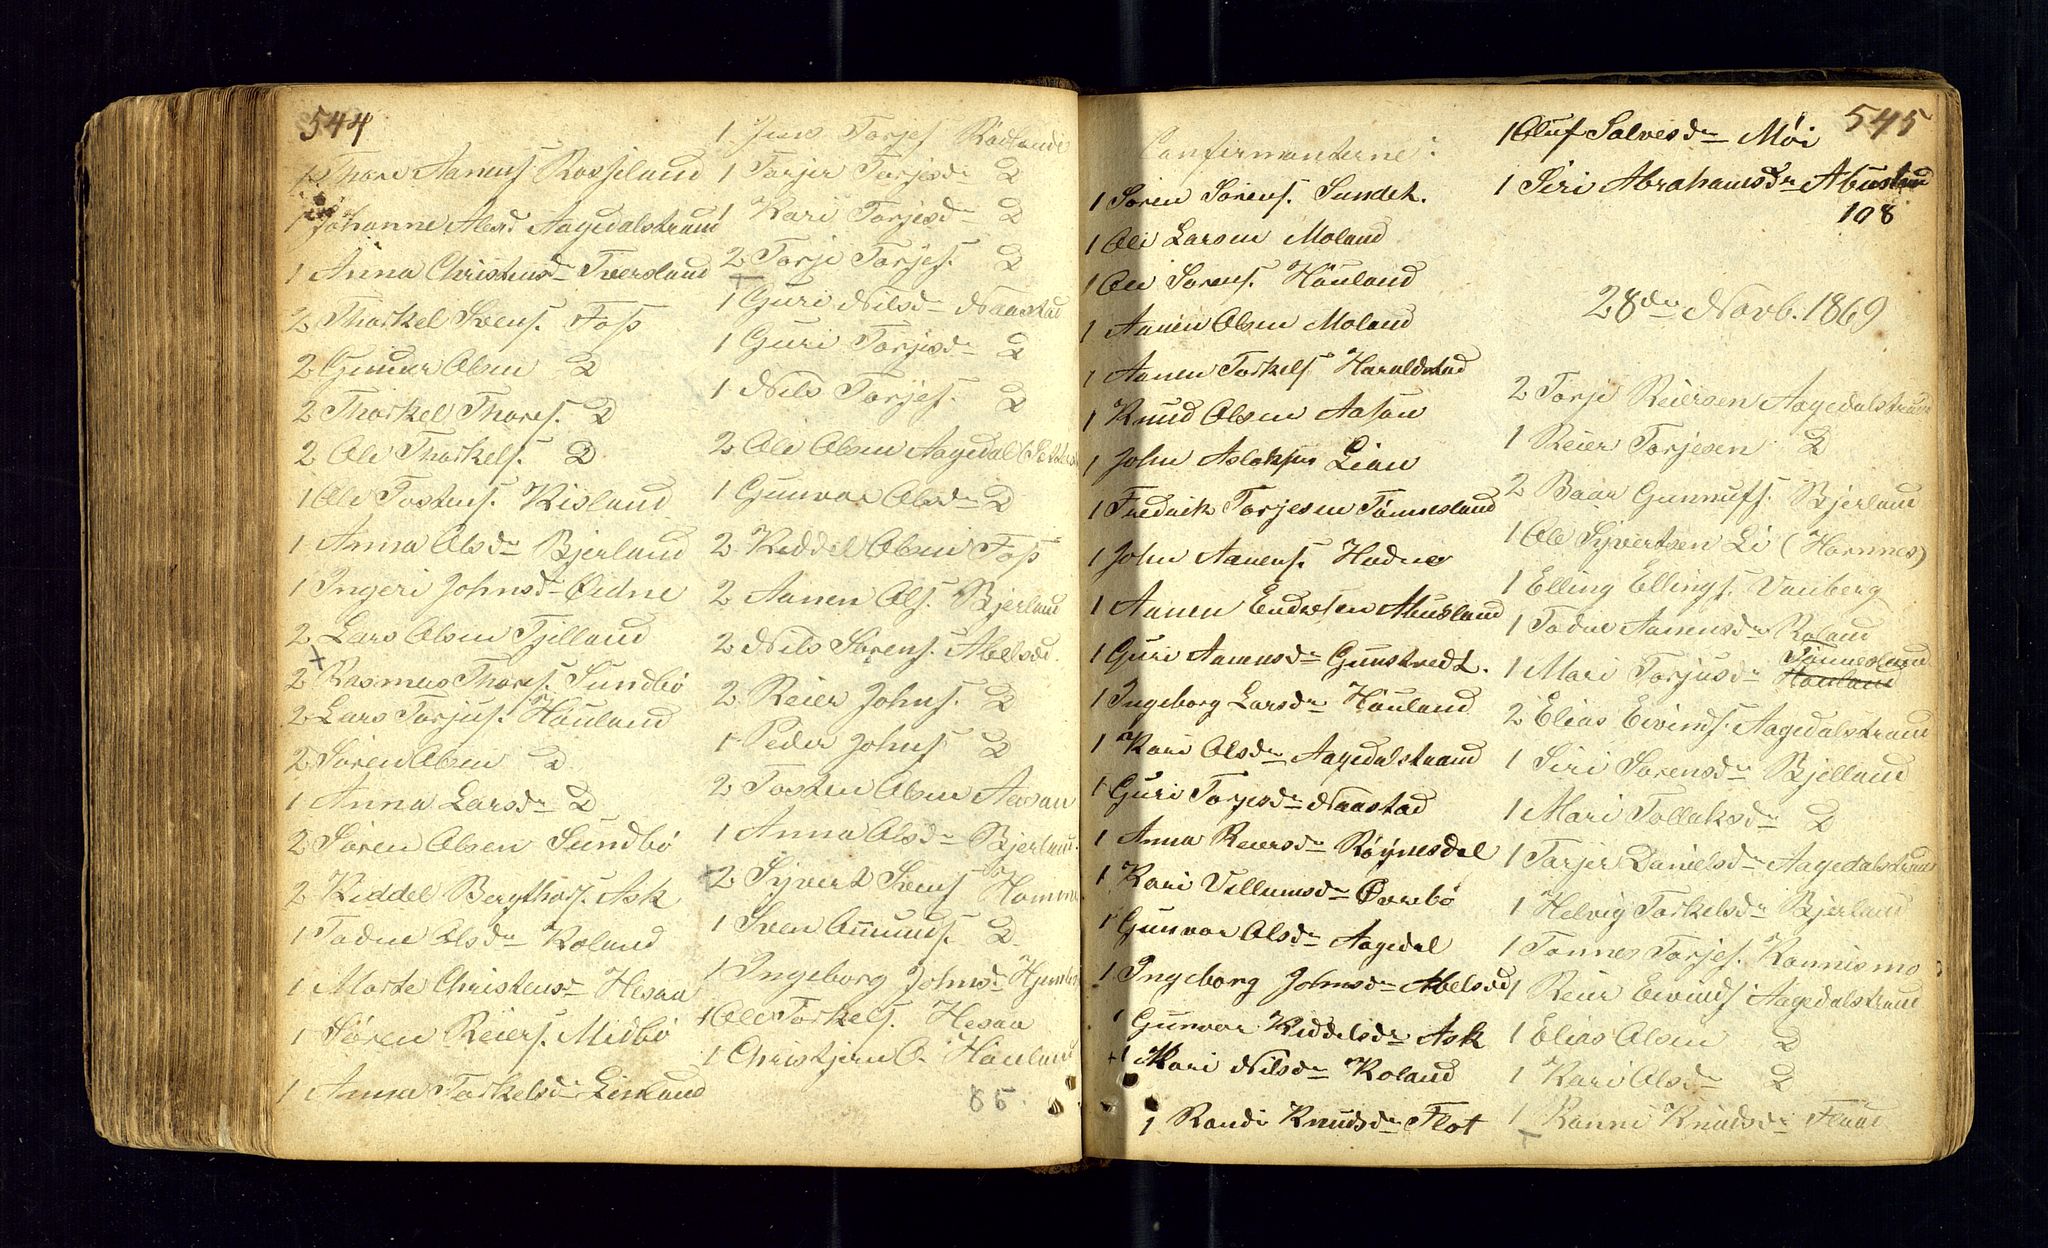 544
1 Thore Aanens. Rosseland
1 Johanne Alexd Aagedalstrand
1 Anna Christensdr Tversland
2 Thorkel Svens. Foss
2 Gunder Olsen D
2 Thorkel Thores. D
2 Ole Thorkels. D
1 Ole Tostens. Kisland
1 Anna Olsdr Bjerland
1 Ingeri Johnsd Øidne
2 Lars Olsen Tjelland
2 Rasmus Thores. Sundbø
2 Lars Torjus. Høuland
2 Søren Olsen D
1 Anna Larsdr D
2 Søren Olsen Sundbø
2 Keddel Bergthors. Ask
1 Todne Olsdr Roland
1 Marte Christensdr Hesaa
1 Søren Reiers. Midbø
1 Anna Torkelsdr Linland
1 Jens Torjes. Rødlande
1 Torjer Torjesdr D
1 Kari Torjesdr D
2 Torje Torjes. D
1 Guri Nilsdr Naastad
1 Guri Torjesdr D
1 Nils Torjes. D
2 Ole Olsen Aagedal
1 Gunvor Olsdr D
2 Keddel Olsen Foss
2 Aanen Ols. Bjerland
2 Nils Sørens. Abelsd
2 Reier Johns. D
1 Peder Johns. D
2 Tosten Olsen Aasan
1 Anna Olsdr Bjerlan
2 Syvert Svens. Homme
1 Sven Aamunds. D
1 Ingeborg Johnsdr
1 Ole Torkels. Hesaa
1 Christjern O. Høuland
85.
545
Confirmanterne:
1 Søren Sørens. Sundet.
1 Ole Larsen Moland
1 Ole Sørens. Høuland
1 Aanen Olsen Moland
1 Aanen Torkels. Haraldstad
1 Knud Olsen Aasan
1 John Aslaksen Lian
1 Fredrik Torjesen Tønnesland
1 John Aanens. Hodne
1 Aanen Endresen Abusland
1 Guri Aanensdr Gunstvedt.
1 Ingeborg Larsdr Høuland
1 Kari Olsdr Aagedalstrand
1 Guri Torjesdr Naastad
1 Anna Reiersdr Røynesdal
1 Kari Villumsdr Øvrebø
1 Gunvor Olsdr Aagedal
1 Ingeborg Johnsdr Abelsd
1 Gunvor Keddelsdr Ask
1 Mari Nilsdr Roland
1 Randi Knudsdr Flot
1 Oluf Salvesdr Møi
1 Siri Abrahamsdr Abusland
108
28de Novb. 1869
2 Torje Reiersen Aagedalstrand
1 Reier Torjesen D
2 Baar Gunnufs. Bjerland
1 Ole Syvertsen Li (Hornnes)
1 Elling Ellings. Vanberg
1 Todne Aanensdr Roland
1 Mari Torjusdr Tønnesland
2 Elias Eivinds. Aagedalstrand
1 Siri Sørensdr Bjelland
1 Mari Tollaksdr D
1 Torjer Danielsdr Aagedalstrand
1 Helvig Torkelsdr Bjerland
1 Tønnes Torjes. Kannismo
1 Reier Eivinds. Aagedalstrand
1 Elias Olsen D
1 Kari Olsdr D
1 Ranni Knudsdr Flaat